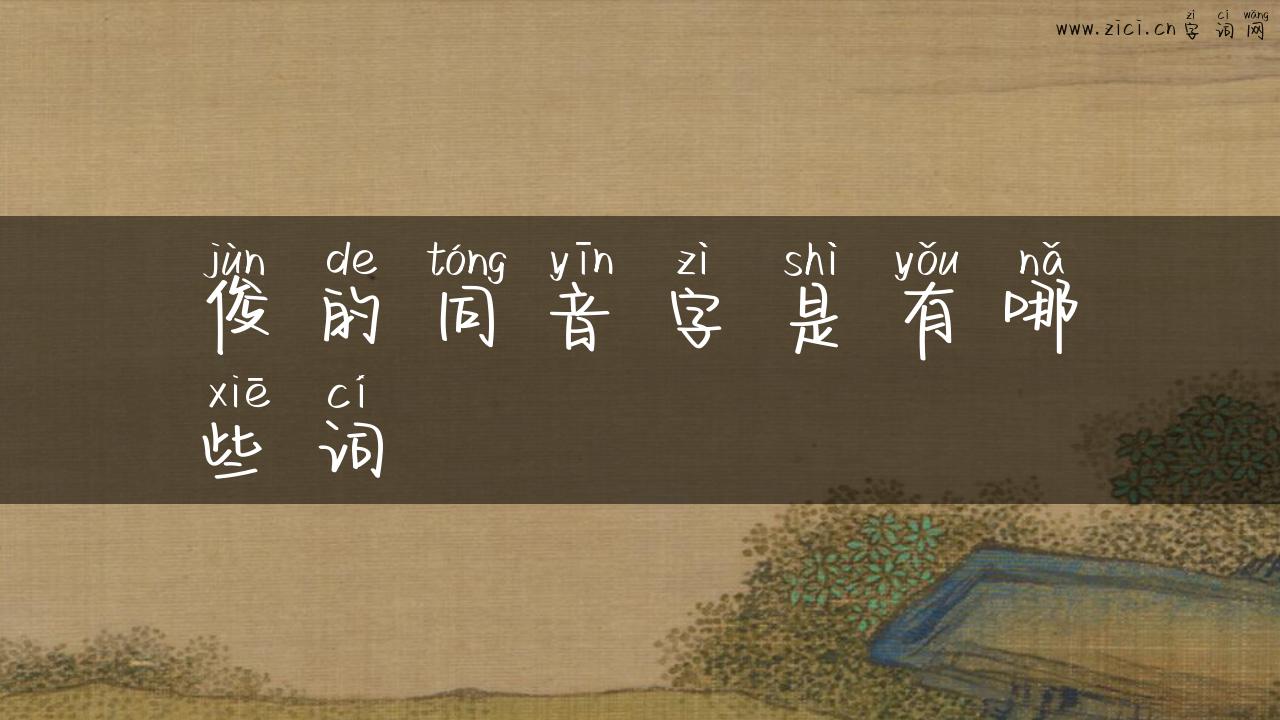 zì cí wǎng
www.zici.cn 字 词 网
jùn de tóng yīn zì shì yǒu nǎ
俊 的 同 音 字 是 有 哪
xiē cí
些 词